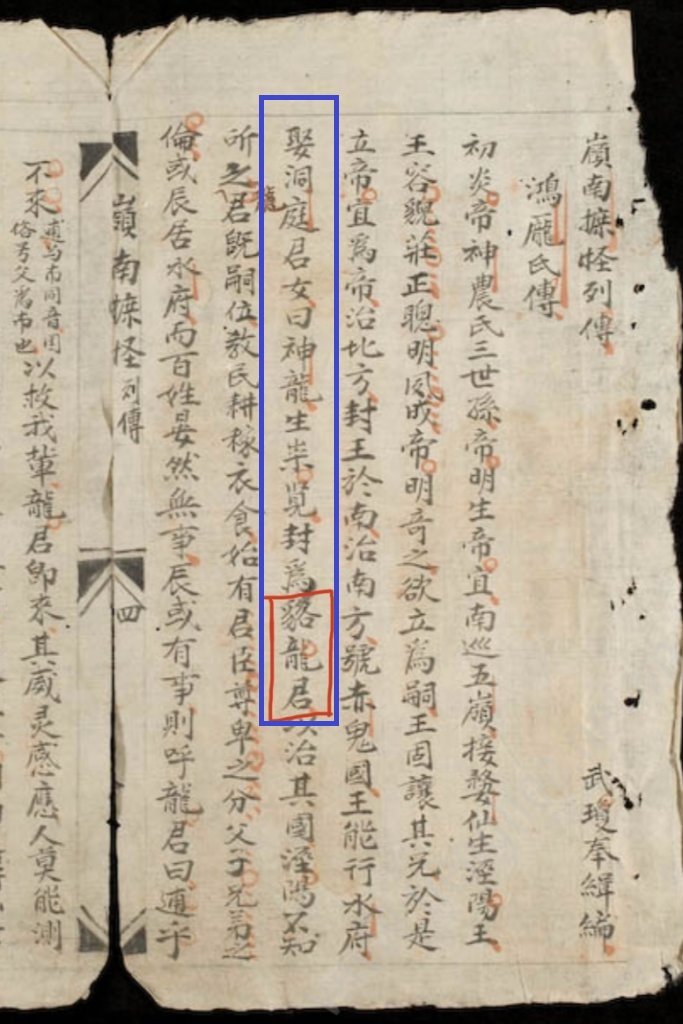 嶺南摭怪列傳
武瓊奉緝編
鴻厖氏傳
初炎帝神農氏三世孫帝明生帝宜南巡五嶺接婺仙生涇陽王
王容貌莊正聰明夙成帝明奇之欲立爲嗣王固讓其兄於是
立帝宜爲帝治北方封王於南治南方號赤鬼國王能行水府
娶洞庭君女曰神龍生崇覽封爲貉龍君以治其國涇陽不知
所之君旣嗣位教民耕稼衣食始有君臣尊卑之分父子兄弟之
龍
倫或辰居水府而百姓晏然無事辰或有事則呼龍君曰逋乎
嶺南摭怪列傳
四
不來
逋与布同音国
俗号父爲布也
以救我輩龍君卽來其威灵感應人莫能測